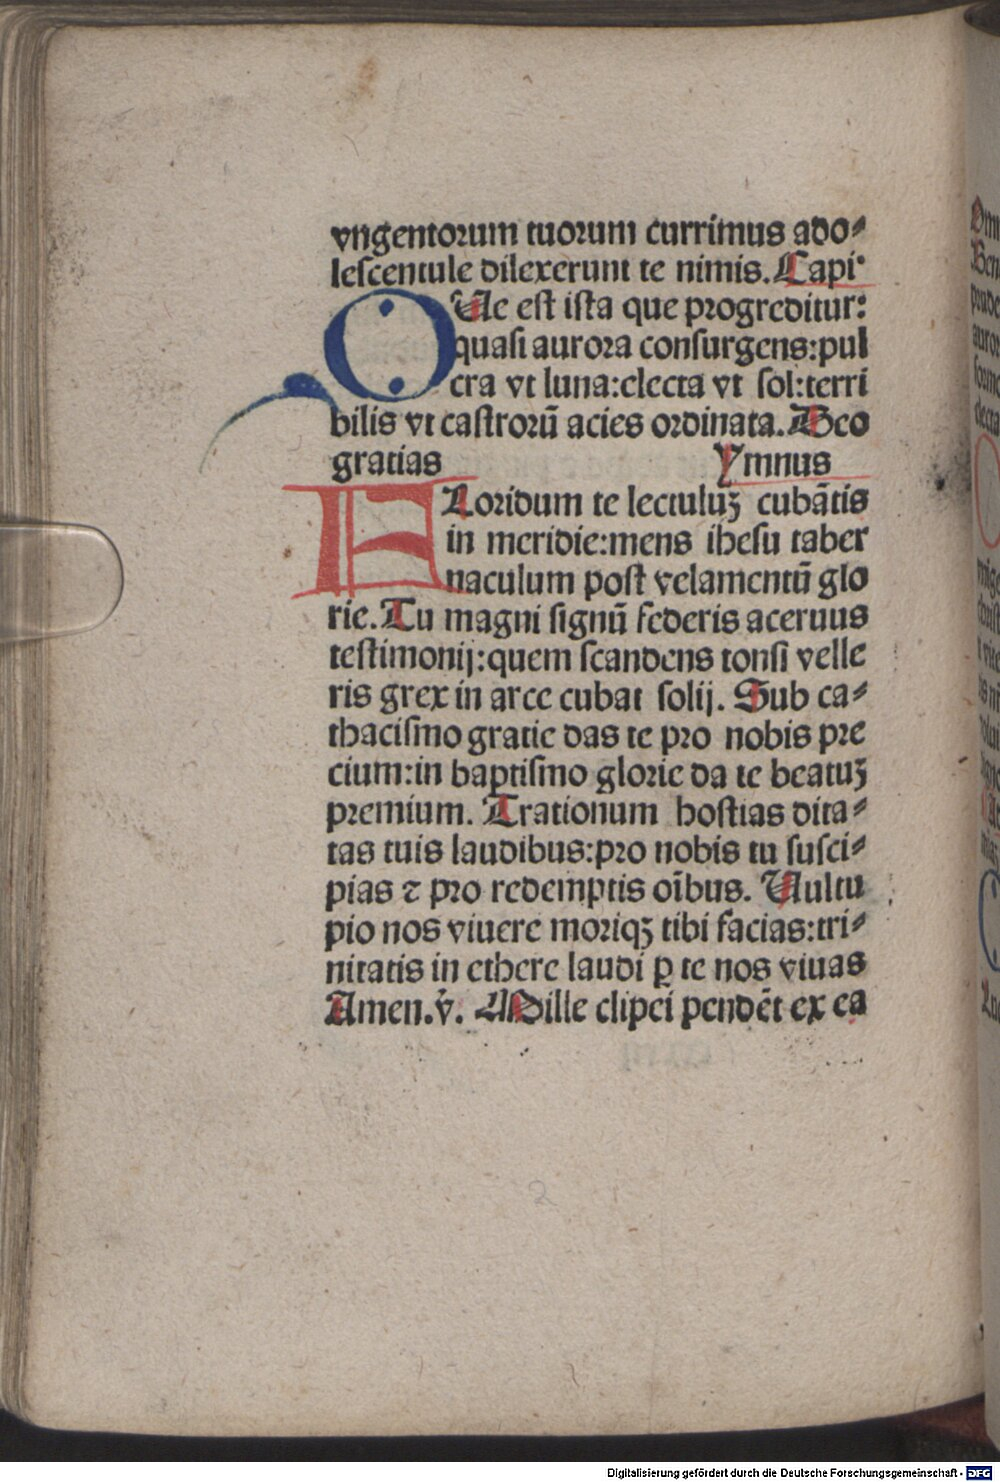 vngentorum tuorum currimus ado⸗
lescentule dilexerunt te nimis. Capi·
QUe est ista que progreditur:
quasi aurora consurgens:pul
cra vt luna:electa vt sol:terri
bilis vt castrorū acies ordinata. Deo
gratias Ymnus
FLoridum te lectuluꝫ cubātis
in meridie:mens ihesu taber
naculum post velamentū glo
rie. Tu magni signū federis aceruus
testimonij:quem scandens tonsi velle
ris grex in arce cubat solij. Sub ca⸗
thacismo gratie das te pro nobis pre
cium:in baptismo glorie da te beatuꝫ
premium. Trationum hostias dita⸗
tas tuis laudibus:pro nobis tu susci⸗
pias ⁊ pro redemptis oībus. Uultu
pio nos viuere moriqꝫ tibi facias:tri⸗
nitatis in ethere laudi ꝑ te nos viuas
Amen. v̄. Mille clipei pendēt ex ea
2
Digitalisierung gefördert durch die Deutsche Forschungsgemeinschaft - DFG